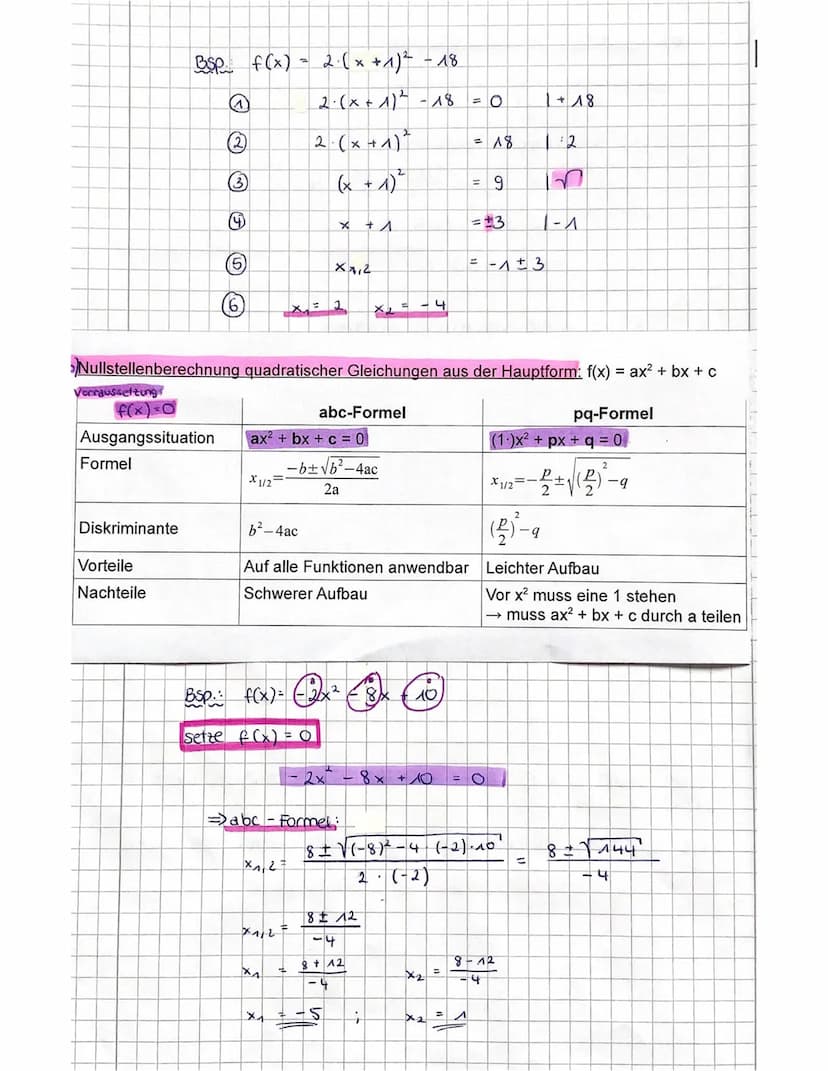 Bsp.: f(x) = 2·(x+1)² - 18
① 2·(x+1)² - 18 = 0 | + 18
② 2·(x+1)² = 18 | : 2
③ (x+1)² = 9 | √
④ x + 1 = ±3 | - 1
⑤ x₁,₂ = -1 ± 3
⑥ x₁ = 2 x₂ = -4
b) Nullstellenberechnung quadratischer Gleichungen aus der Hauptform: f(x) = ax² + bx + c
Vorraussetzung:
f(x) = 0
abc-Formel pq-Formel
Ausgangssituation ax² + bx + c = 0 (1·)x² + px + q = 0
Formel x₁/₂ = (-b±√(b²-4ac))/(2a) x₁/₂ = -p/2 ± √((p/2)² - q)
Diskriminante b² - 4ac (p/2)² - q
Vorteile Auf alle Funktionen anwendbar Leichter Aufbau
Nachteile Schwerer Aufbau Vor x² muss eine 1 stehen
→ muss ax² + bx + c durch a teilen
a b c
Bsp.: f(x) = -2x² - 8x + 10
setze f(x) = 0
-2x² - 8x + 10 = 0
⇒ abc - Formel:
x₁,₂ = (8 ± √((-8)² - 4·(-2)·10))/(2·(-2)) = (8 ± √144)/(-4)
x₁,₂ = (8 ± 12)/(-4)
x₁ = (8 + 12)/(-4) x₂ = (8 - 12)/(-4)
x₁ = -5 ; x₂ = 1